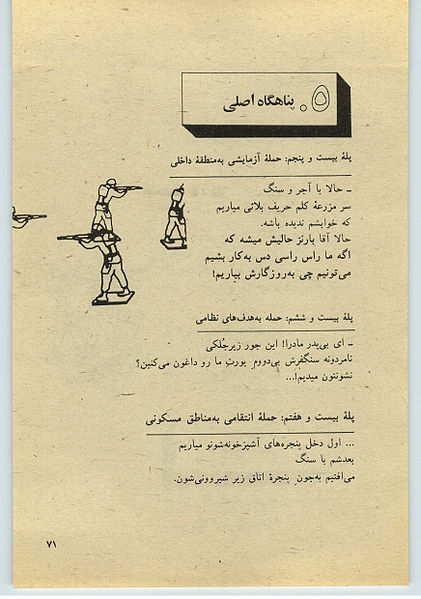 ۵. پناهگاه اصلی
پلهٔ بیست و پنجم: حملهٔ آزمایشی به‌منطقهٔ داخلی
ـ حالا با آجر و سنگ
سر مزرعهٔ کلم حریف بلائی میاریم
که خوابشم ندیده باشه.
حالا آقا بارنز حالیش میشه که
اگه ما راس راسی دس به‌کار بشیم
می‌تونیم چی به‌روزگارش بیاریم!
پلهٔ بیست و ششم: حمله به‌هدف‌های نظامی
ـ ای بی‌پدر مادرا! این جور زیرجُلکی
نامردونه سنگفرش پی‌دووم یورتِ ما رو داغون می‌کنین؟
نشونتون میدیم!...
پلهٔ بیست و هفتم: حملهٔ انتقامی به‌مناطق مسکونی
... اول دخل پنجره‌های آشپزخونه‌شونو میاریم
بعدشم با سنگ
می‌افتیم به‌جونِ پنجرهٔ اتاق زیر شیروونی‌شون.
۷۱